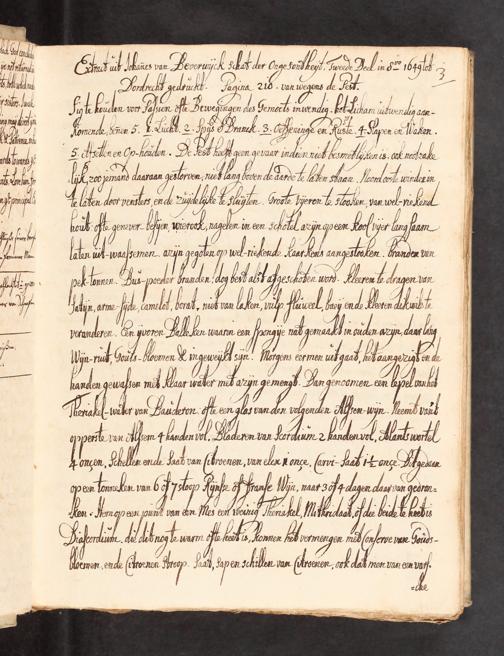 3
Extract uit Johañes van Beverwijck schat der Ongesondheyt, Tweede Deel in 8vo 1649 tot
Dordrecht gedruckt. Pagina 210. van wegens de Pest.
Sig te houden voor Passien ofte Bewegingen des Gemoets inwendig. het Licham uitwendig aan-
Komende, 5. 1. Lucht. 2. Spijs & Dranck. 3. Oeffeninge en Rust. 4. Slapen en Waken.
5. Afsetten en Op-houden. De Pest heeft geen gevaar indien niet besmettelijken is. ook nootzake
lijk, zoo jemand daaraan gestorven, niet lang boven de aerde te laten staan. Noordooste winden in
te laten door vensters en de zuydelijke te sluyten. Groote vijeren te stooken, van wel-riekend
hout, ofte genever-besijen, wieroock, nagelen in een schotel azijn op een kool vyer langsaam
laten uit-waassemen. azijn gegoten op wel-riekende kaarsken aangestroken. Branden van
pek-tonnen. Bus-poeder branden, dog best alst afgeschoten word. Kleeren te dragen van
Satijn, arme-syde, camelot, borat, niet van laken, vulp, fluweel, bay en de kleeren dikwils te
veranderen. Een yvoren Balleken waarin een spongye nat gemaakt in ouden azyn, daar lang
Wijn-ruit, Gouts-bloemen & in geweyckt syn. Morgens eer men uit gaat, het aangezigt en de
handen gewassen met klaar water met azijn gemengt. Dan genoomen een lepel van het
Theriakel-water van Bauderon. ofte een glas van den volgenden Alssen-wijn. Neemt van 't
opperste van Alssen 4 handen vol, Bladeren van Scordium 2 handen vol, Alant wortel
4 oncen, Schellen ende Saat van Citroenen, van elcx 1 once, Carvi-Saat 1½ once. Dit gedaen
op een tonneken van 6 of 7 stoop Rijnse of Franse Wijn, naar 3 of 4 dagen daar van gedron-
ken. Item op een punt van een Mes een weinig Theriakel, Mithridaat, of die beide te heet is
Diascordium. die dat nog te warm ofte heet is, konnen het vermengen met Conserve van Gouds-
bloemen, ende Citroenen Siroop. Saat, sap en schillen van Citroenen, ook dat men van een vars-
=che